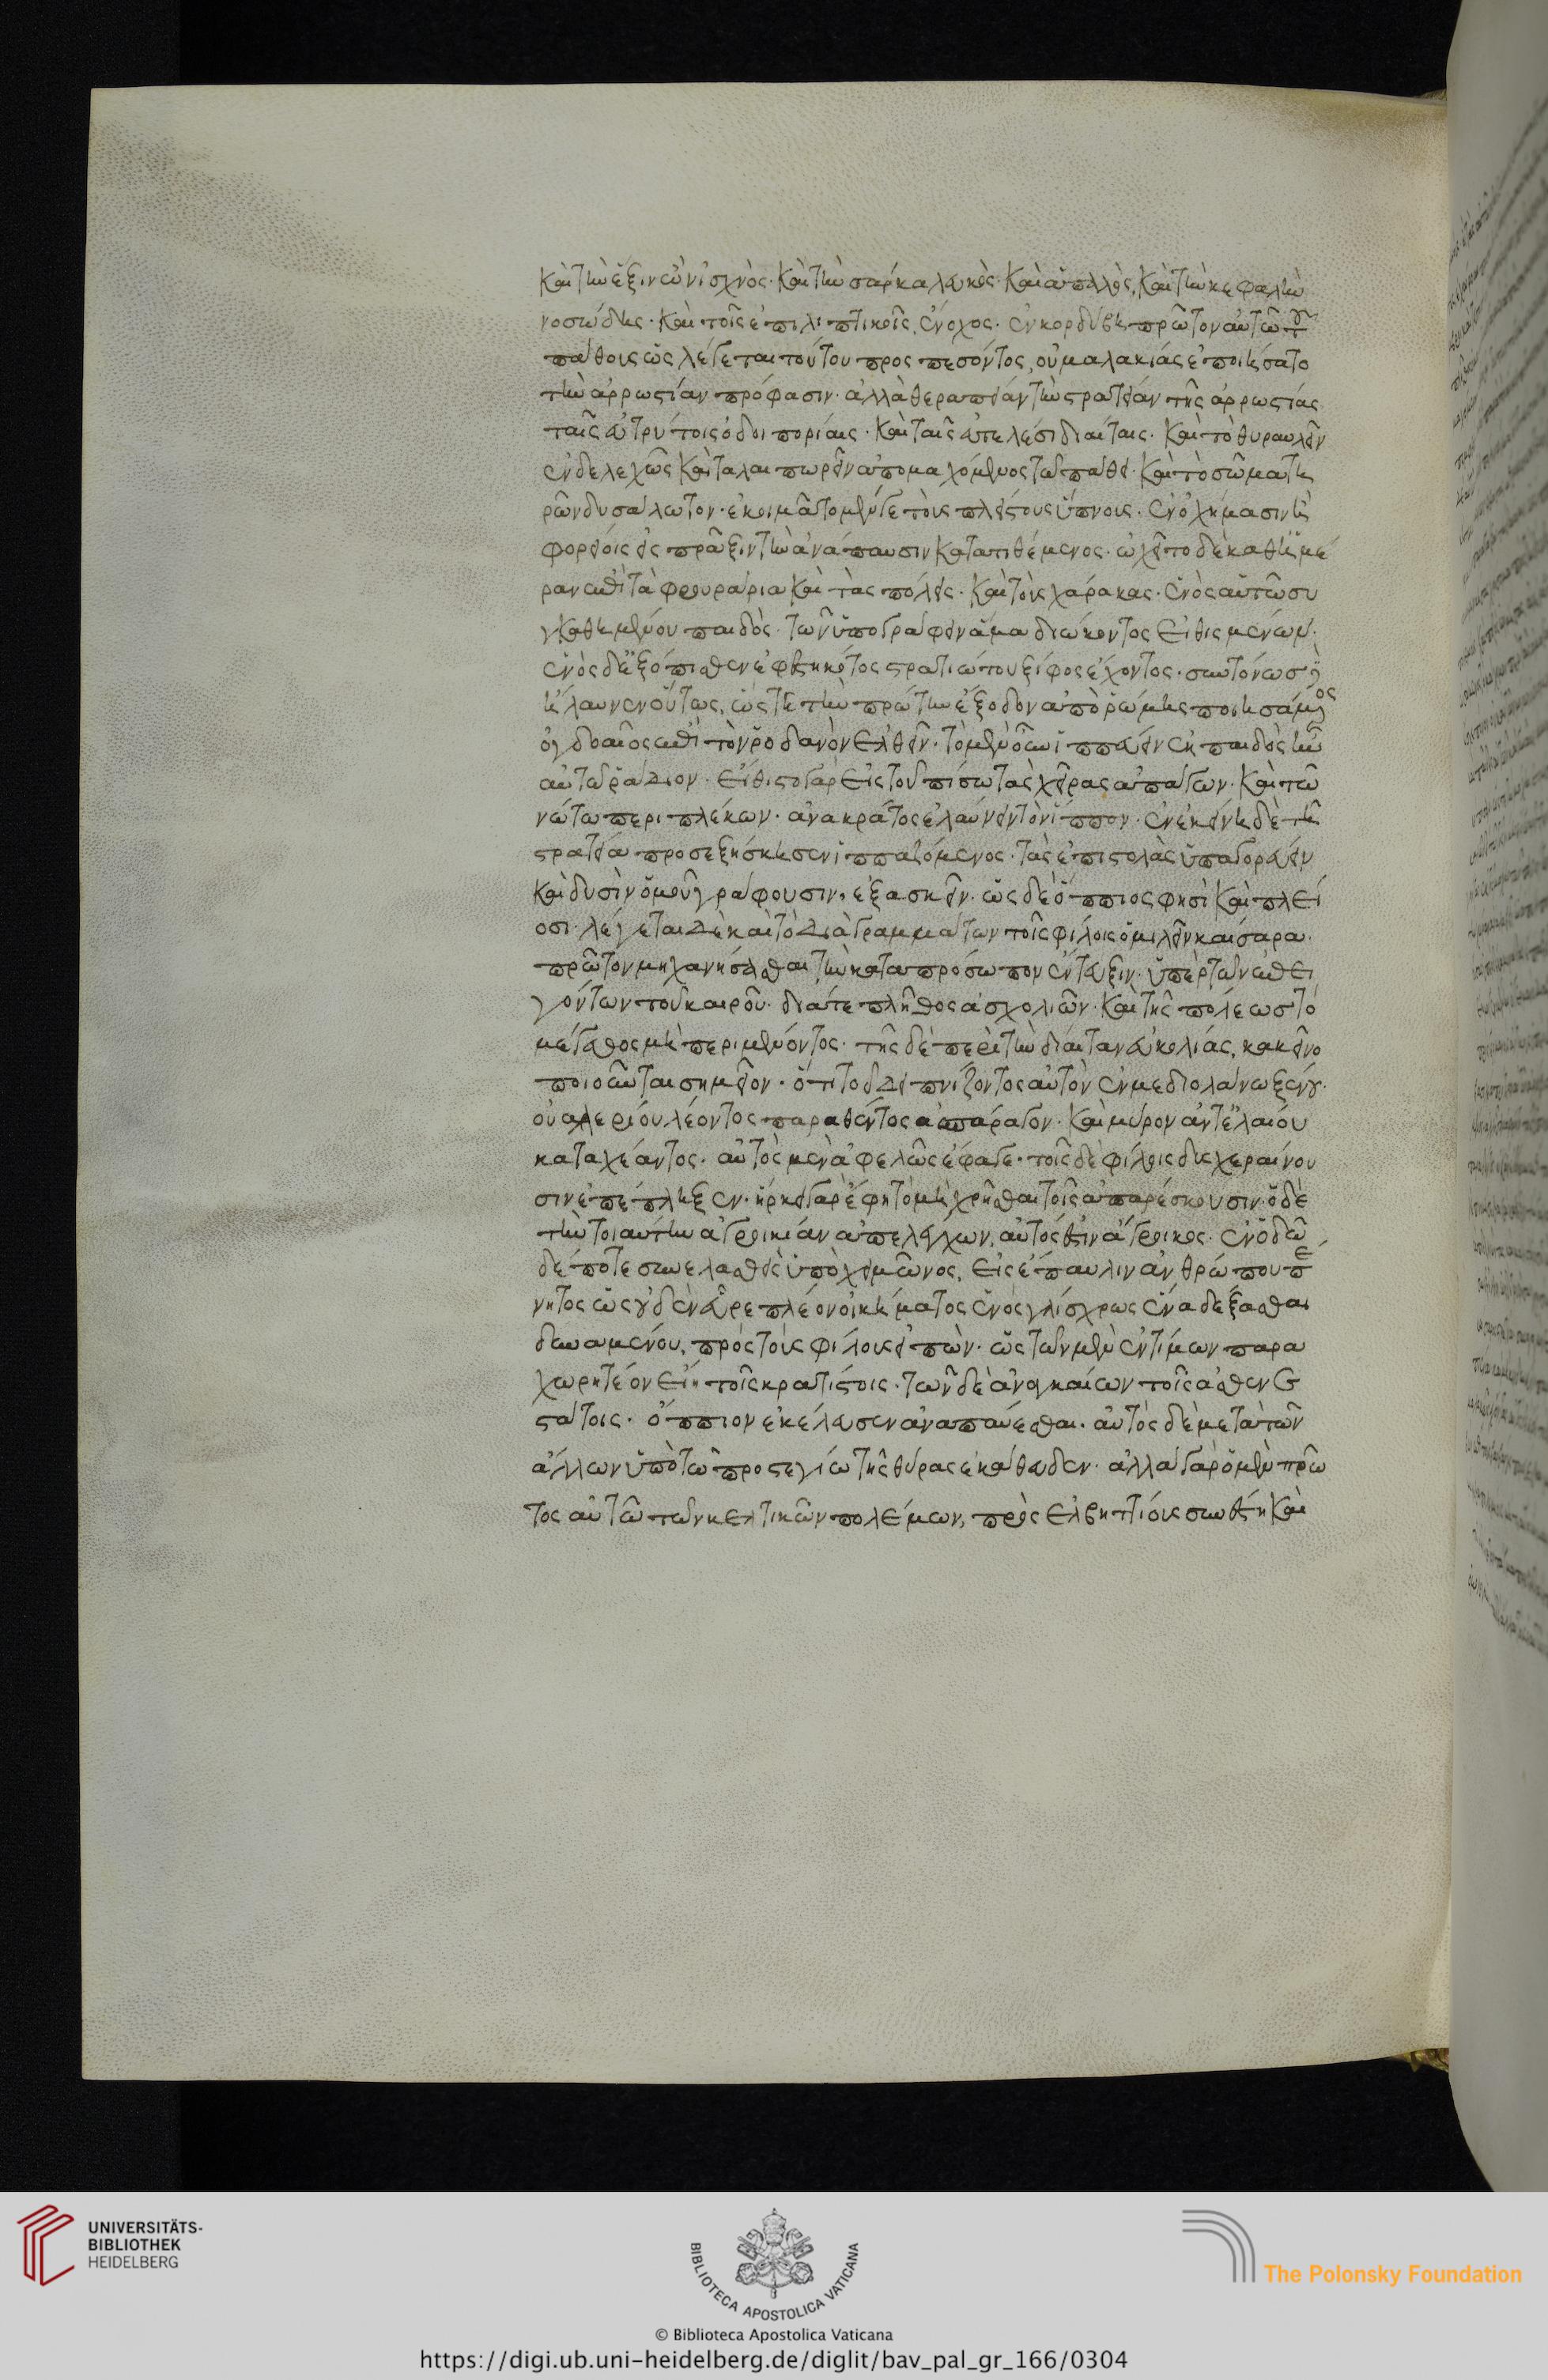 καὶ τὴν ἕξιν ὢν ἰσχνὸς· καὶ τὴν σάρκα λευκὸς· καὶ ἁπαλὸς, καὶ τὴν κεφαλὴν
νοσώδης· καὶ τοῖς ἐπιληπτικοῖς ἔνοχος· ἐν κορδύβῃ πρῶτον αὐτῶ τοῦ
πάθους ὡς λέγεται τούτου προσπεσόντος, οὐ μαλακίας ἐποιήσατο
τὴν ἀρρωστίαν πρόφασιν· ἀλλὰ θεραπείαν τὴν στρατείαν τῆς ἀρρωστίας
ταῖς ἀτρύτοις ὁδοιπορίαις· καὶ ταῖς εὐτελέσι διαίταις· καὶ τὸ θυραυλεῖν
ἐνδελεχῶς καὶ ταλαιπωρεῖν ἀπομαχόμενος τῶ πάθει· καὶ τὸ σῶμα τη
ρῶν δυσάλωτον· ἐκοιμᾶτο μέν γε τοὺς πλείστους ὕπνους· ἐν ὀχήμασιν ἢ
φορείοις εἰς πρᾶξιν τὴν ἀνάπαυσιν κατατιθέμενος· ὠχεῖτο δὲ καθημέ
ραν ἐπὶ τὰ φρουράρια καὶ τὰς πόλεις· καὶ τοὺς χάρακας· ἑνὸς αὐτῶ συ
γκαθημένου παιδὸς· τῶν ὑπογράφειν ἅμα διώκοντος εἰθισμένων·
ἑνὸς δ' ἐξόπισθεν ἐφεστηκότος στρατιώτου ξίφος ἔχοντος· συντόνως δὲ
ἤλαυνεν οὕτως, ὥστε τὴν πρώτην ἔξοδον ἀπὸ ῥώμης ποιησάμενος
ὀγδοαῖος ἐπὶ τὸν ῥοδανὸν ἐλθεῖν· τὸ μὲν οὖν ἱππεύειν ἐκ παιδὸς ἦν
αὐτῶ ῥάδιον· εἴθιστο γὰρ εἰς τοὐπίσω τὰς χεῖρας ἀπάγων· καὶ τῶ
νώτω περιπλέκων· ἀνακράτος ἐλαύνειν τὸν ἵππον· ἐν ἐκείνῃ δὲ τῇ
στρατεία προσεξήσκησεν ἱππαζόμενος· τὰς ἐπιστολὰς ὑπαγορεύειν
καὶ δυσὶν ὁμοῦ γράφουσιν· ἐξασκεῖν· ὡς δὲ ὄππιος φησὶ καὶ πλεί
οσι· λέγεται δὲ καὶ τὸ διὰ γραμμάτων τοῖς φίλοις ὁμιλεῖν καίσαρα·
πρῶτον μηχανήσασθαι τὴν κατα πρόσωπον ἔντευξιν· ὑπὲρ τῶν ἐπει
γόντων τοῦ καιροῦ· διά τε πλῆθος ἀσχολιῶν· καὶ τῆς πόλεως τὸ
μέγεθος μὴ περιμένοντος· τῆς δὲ περὶ τὴν δίαιταν εὐκολίας, κακεῖνο
ποιοῦνται σημεῖον· ὅτι τοῦ δειπνίζοντος αὐτὸν ἐν μεδιολάνω ξένου
οὐαλερίου λέοντος παραθέντος ἀσπάραγον· καὶ μύρον ἀντ' ἐλαίου
καταχέαντος· αὐτὸς μὲν ἀφελῶς ἔφαγε· τοῖς δὲ φίλοις δυσχεραίνου
σιν ἐπέπληξεν· ἤρκει γὰρ ἔφη τὸ μὴ χρῆσθαι τοῖς ἀπαρέσκουσιν· ὁ δὲ
τὴν τοιαύτην ἀγροικίαν ἀπελέγχων, αὐτός ἐστιν ἄγροικος· ἐν ὁδῶ
δέ ποτε συνελασθεὶς ὑπὸ χειμῶνος, εἰς ἔπαυλιν ἀνθρώπου πέ
νητος ὡς οὐδὲν εὗρε πλέον οἰκήματος ἑνὸς γλίσχρως ἕνα δέξασθαι
δυναμένου, πρὸς τοὺς φίλους εἰπὼν· ὡς τῶν μὲν ἐντίμων παρα
χωρητέον εἴη τοῖς κρατίστοις· τῶν δὲ ἀναγκαίων τοῖς ἀσθενε
στάτοις· ὄππιον ἐκέλευσεν ἀναπαύεσθαι· αὐτὸς δὲ μετὰ τῶν
ἄλλων ὑπὸ τῶ προστεγίω τῆς θύρας ἐκάθευδεν· ἀλλὰ γὰρ ὁ μὲν πρῶ
τος αὐτῶ τῶν κελτικῶν πολέμων, πρὸς ἐλβηττίους συνέστη καὶ
UNIVERSITÄTS-
BIBLIOTHEK
HEIDELBERG
BIBLIOTECA APOSTOLICA VATICANA
The Polonsky Foundation
© Biblioteca Apostolica Vaticana
https://digi.ub.uni-heidelberg.de/diglit/bav_pal_gr_166/0304